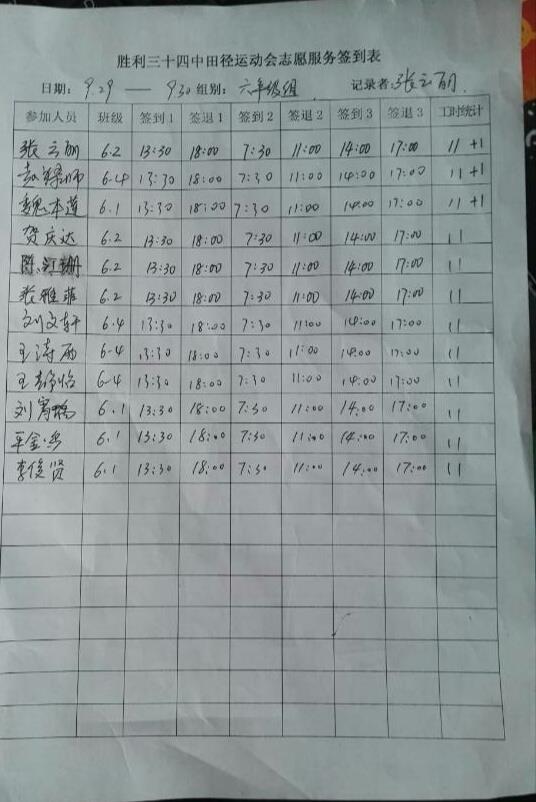 胜利三十四中田径运动会志愿服务签到表
日期: 9.29 — 9.30 组别: 六年级组 记录者: 张云丽
参加人员 班级 签到1 签退1 签到2 签退2 签到3 签退3 工时统计
张云丽 6.2 13:30 18:00 7:30 11:00 14:00 17:00 11 +1
6-4 13:30 18:00 7:30 11:00 14:00 17:00 11 +1
魏本莲 6.1 13:30 18:00 7:30 11:00 14:00 17:00 11 +1
贺庆达 6.2 13:30 18:00 7:30 11:00 14:00 17:00 11
6.2 13:30 18:00 7:30 11:00 14:00 17:00 11
张雅菲 6.2 13:30 18:00 7:30 11:00 14:00 17:00 11
刘文轩 6.4 13:30 18:00 7:30 11:00 14:00 17:00 11
王涛 6-4 13:30 18:00 7:30 11:00 14:00 17:00 11
6-4 13:30 18:00 7:30 11:00 14:00 17:00 11
刘 6.1 13:30 18:00 7:30 11:00 14:00 17:00 11
6.1 13:30 18:00 7:30 11:00 14:00 17:00 11
李俊贤 6.1 13:30 18:00 7:30 11:00 14:00 17:00 11